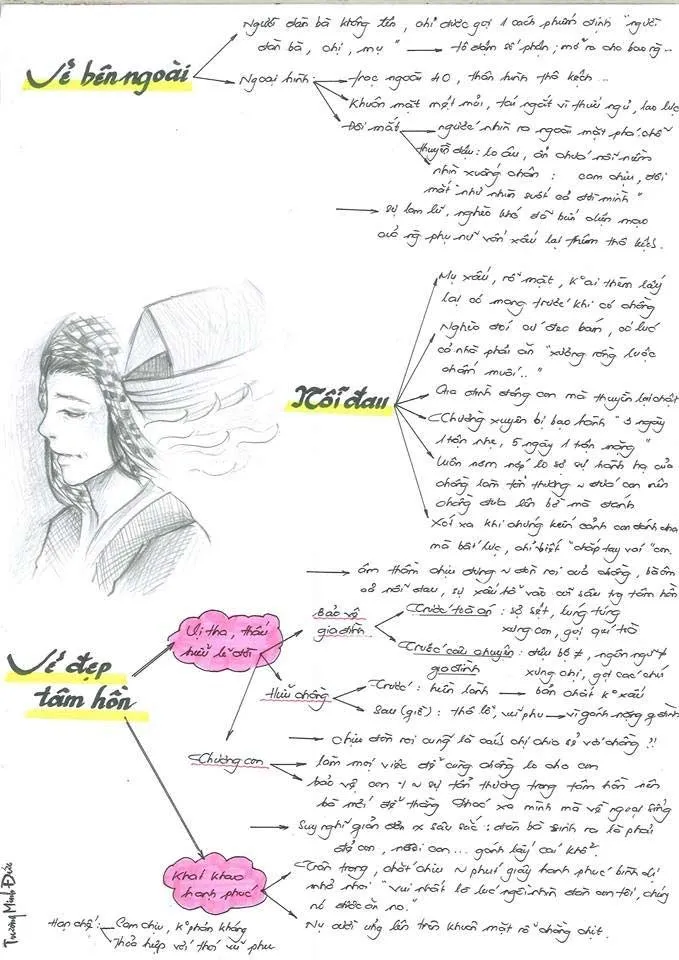 Vẻ bên ngoài
Người đàn bà không tên, chỉ được gọi 1 cách phiếm định "người
đàn bà, chị, mụ" → tô đậm số phận; mở ra cho bao ng...
Ngoại hình: trạc ngoài 40, thân hình thô kệch...
Khuôn mặt mệt mỏi, tái ngắt vì thức ngủ, lao lực
Đôi mắt ngước nhìn ra ngoài mặt phá, chỗ
thuyền đậu: lo âu, ẩn chứa nỗi niềm
nhìn xuống chân: cam chịu, đôi
mắt "như nhìn suốt cả đời mình"
→ sự lam lũ, nghèo khó đã diện mạo
của ng phụ nữ vốn xấu lại thêm thô kệch.
Nỗi đau
Mụ xấu, rỗ mặt, k ai thèm lấy
lại có mang trước khi có chồng
Nghèo đói cứ đeo bám, có lúc
cả nhà phải ăn "xương rồng luộc
chấm muối.."
Gia đình đông con mà thuyền lại chật
Thường xuyên bị bạo hành "3 ngày
1 trận nhẹ, 5 ngày 1 trận nặng"
Luôn nơm nớp lo sợ sự hành hạ của
chồng làm tổn thương ~ đứa con nên
chồng đưa lên bờ mà đánh
Xót xa khi chứng kiến cảnh con đánh cha
mà bất lực, chỉ biết "chắp tay vái" con.
→ âm thầm chịu đựng ~ đòn roi của chồng, bà ôm
cả nỗi đau, sự xấu hổ vào cõi sâu trg tâm hồn
Vẻ đẹp
tâm hồn
Vị tha, thấu
hiểu lẽ đời
Bảo vệ
gia đình
Trước toà án: sợ sệt, lúng túng
xưng con, gọi quí toà
Trước câu chuyện
gia đình: điệu bộ ≠, ngôn ngữ ≠
xưng chị, gọi các chú
Hiểu chồng
Trước: hiền lành → bản chất k xấu
Sau (giờ): thô lỗ, vũ phu → vì gánh nặng gia đình
→ Chịu đòn roi cũng là cách chị chia sẻ với chồng ?!
Thương con
làm mọi việc để cùng chồng lo cho con
bảo vệ con ~ sự tổn thương trong tâm hồn nên
bà mới để thằng Phác xa mình mà về ngoại sống
→ Suy nghĩ giản đơn x sâu sắc: đàn bà sinh ra là phải
đẻ con, nuôi con... gánh lấy cái khổ".
Khát khao
hạnh phúc
Trân trọng, chắt chiu ~ phút giây hạnh phúc bình dị
nhỏ nhoi "vui nhất là lúc ngồi nhìn đàn con tôi, chúng
nó được ăn no."
Nụ cười ửng lên trên khuôn mặt rỗ chằng chịt.
Hạn chế: Cam chịu, k phản kháng
Thỏa hiệp với thói vũ phu
Trương Minh Đức